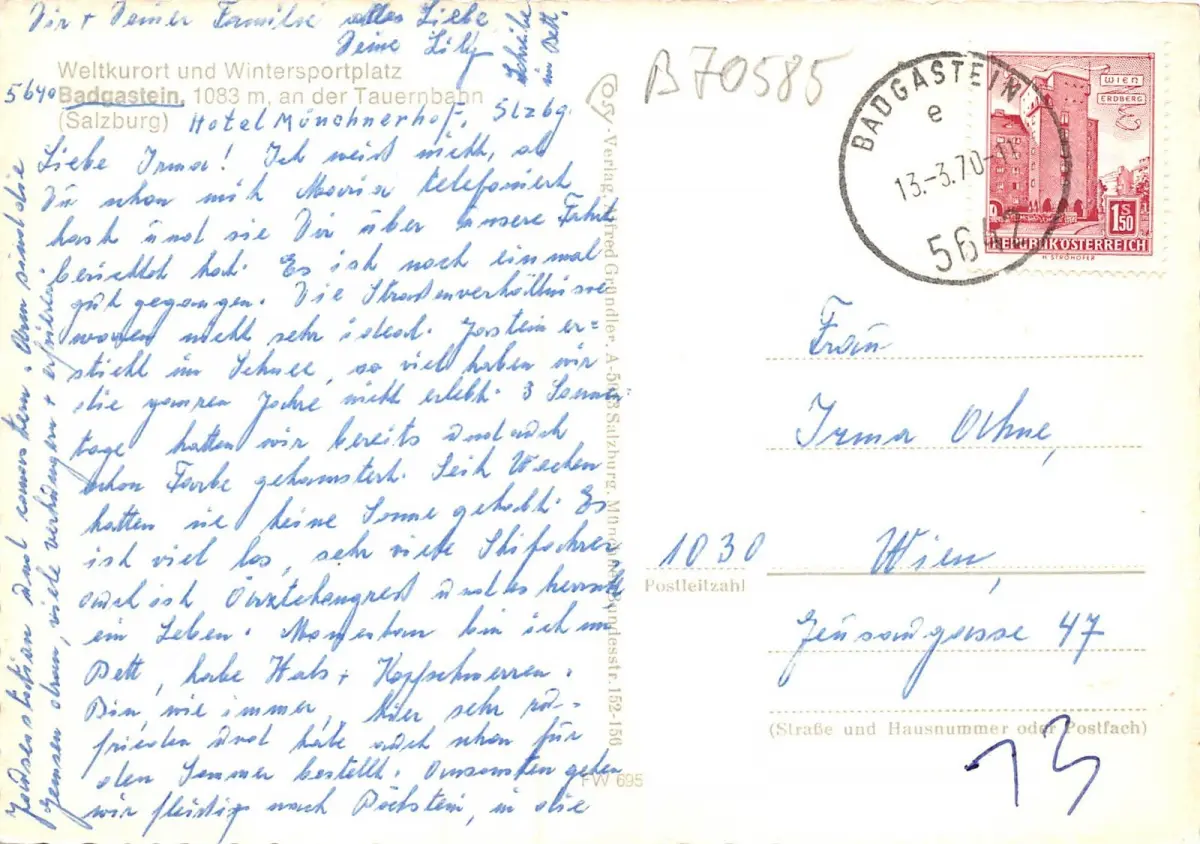 Weltkurort und Wintersportplatz
5640 Badgastein, 1083 m, an der Tauernbahn
(Salzburg) Hotel Münchnerhof, Slzbg.
Liebe Irma! Ich weiß nicht, ob
Du schon mit Maria telefoniert
hast und sie Dir über unsere Fahrt
berichtet hat. Es ist noch einmal
gut gegangen. Die Straßenverhältnisse
waren nicht sehr ideal. Gastein er=
stickt im Schnee, so viel haben wir
die ganzen Jahre nicht erlebt. 3 Sonnen
tage hatten wir bereits und auch
schon Farbe gehamstert. Seit Wochen
hatten sie keine Sonne gehabt. Es
ist viel los, sehr viele Skifahrer
auch ist Ärztekongreß und es herrscht
ein Leben. Momentan bin ich im
Bett, habe Hals + Kopfschmerzen.
Bin, wie immer, hier sehr zu=
frieden und habe auch schon für
den Sommer bestellt. Ansonsten gehen
wir fleißig nach Böckstein, in die
Jausenstation und
Gemsen dran, viele verhungern + erfrieren
Dir + Deiner Familie alles Liebe
Deine Lilly
Schreibe
im Bett
-Verlag Alfred Gründler, A-5033 Salzburg, Münchner Bundesstr. 152-156
FW 695
B70585
BADGASTEIN
e
13.-3.70-11
5640
WIEN
ERDBERG
1 S 50
REPUBLIK ÖSTERREICH
H. STROHOFER
Frau
Irma Ohne,
1030 Wien,
Postleitzahl
Geusaugasse 47
(Straße und Hausnummer oder Postfach)
13